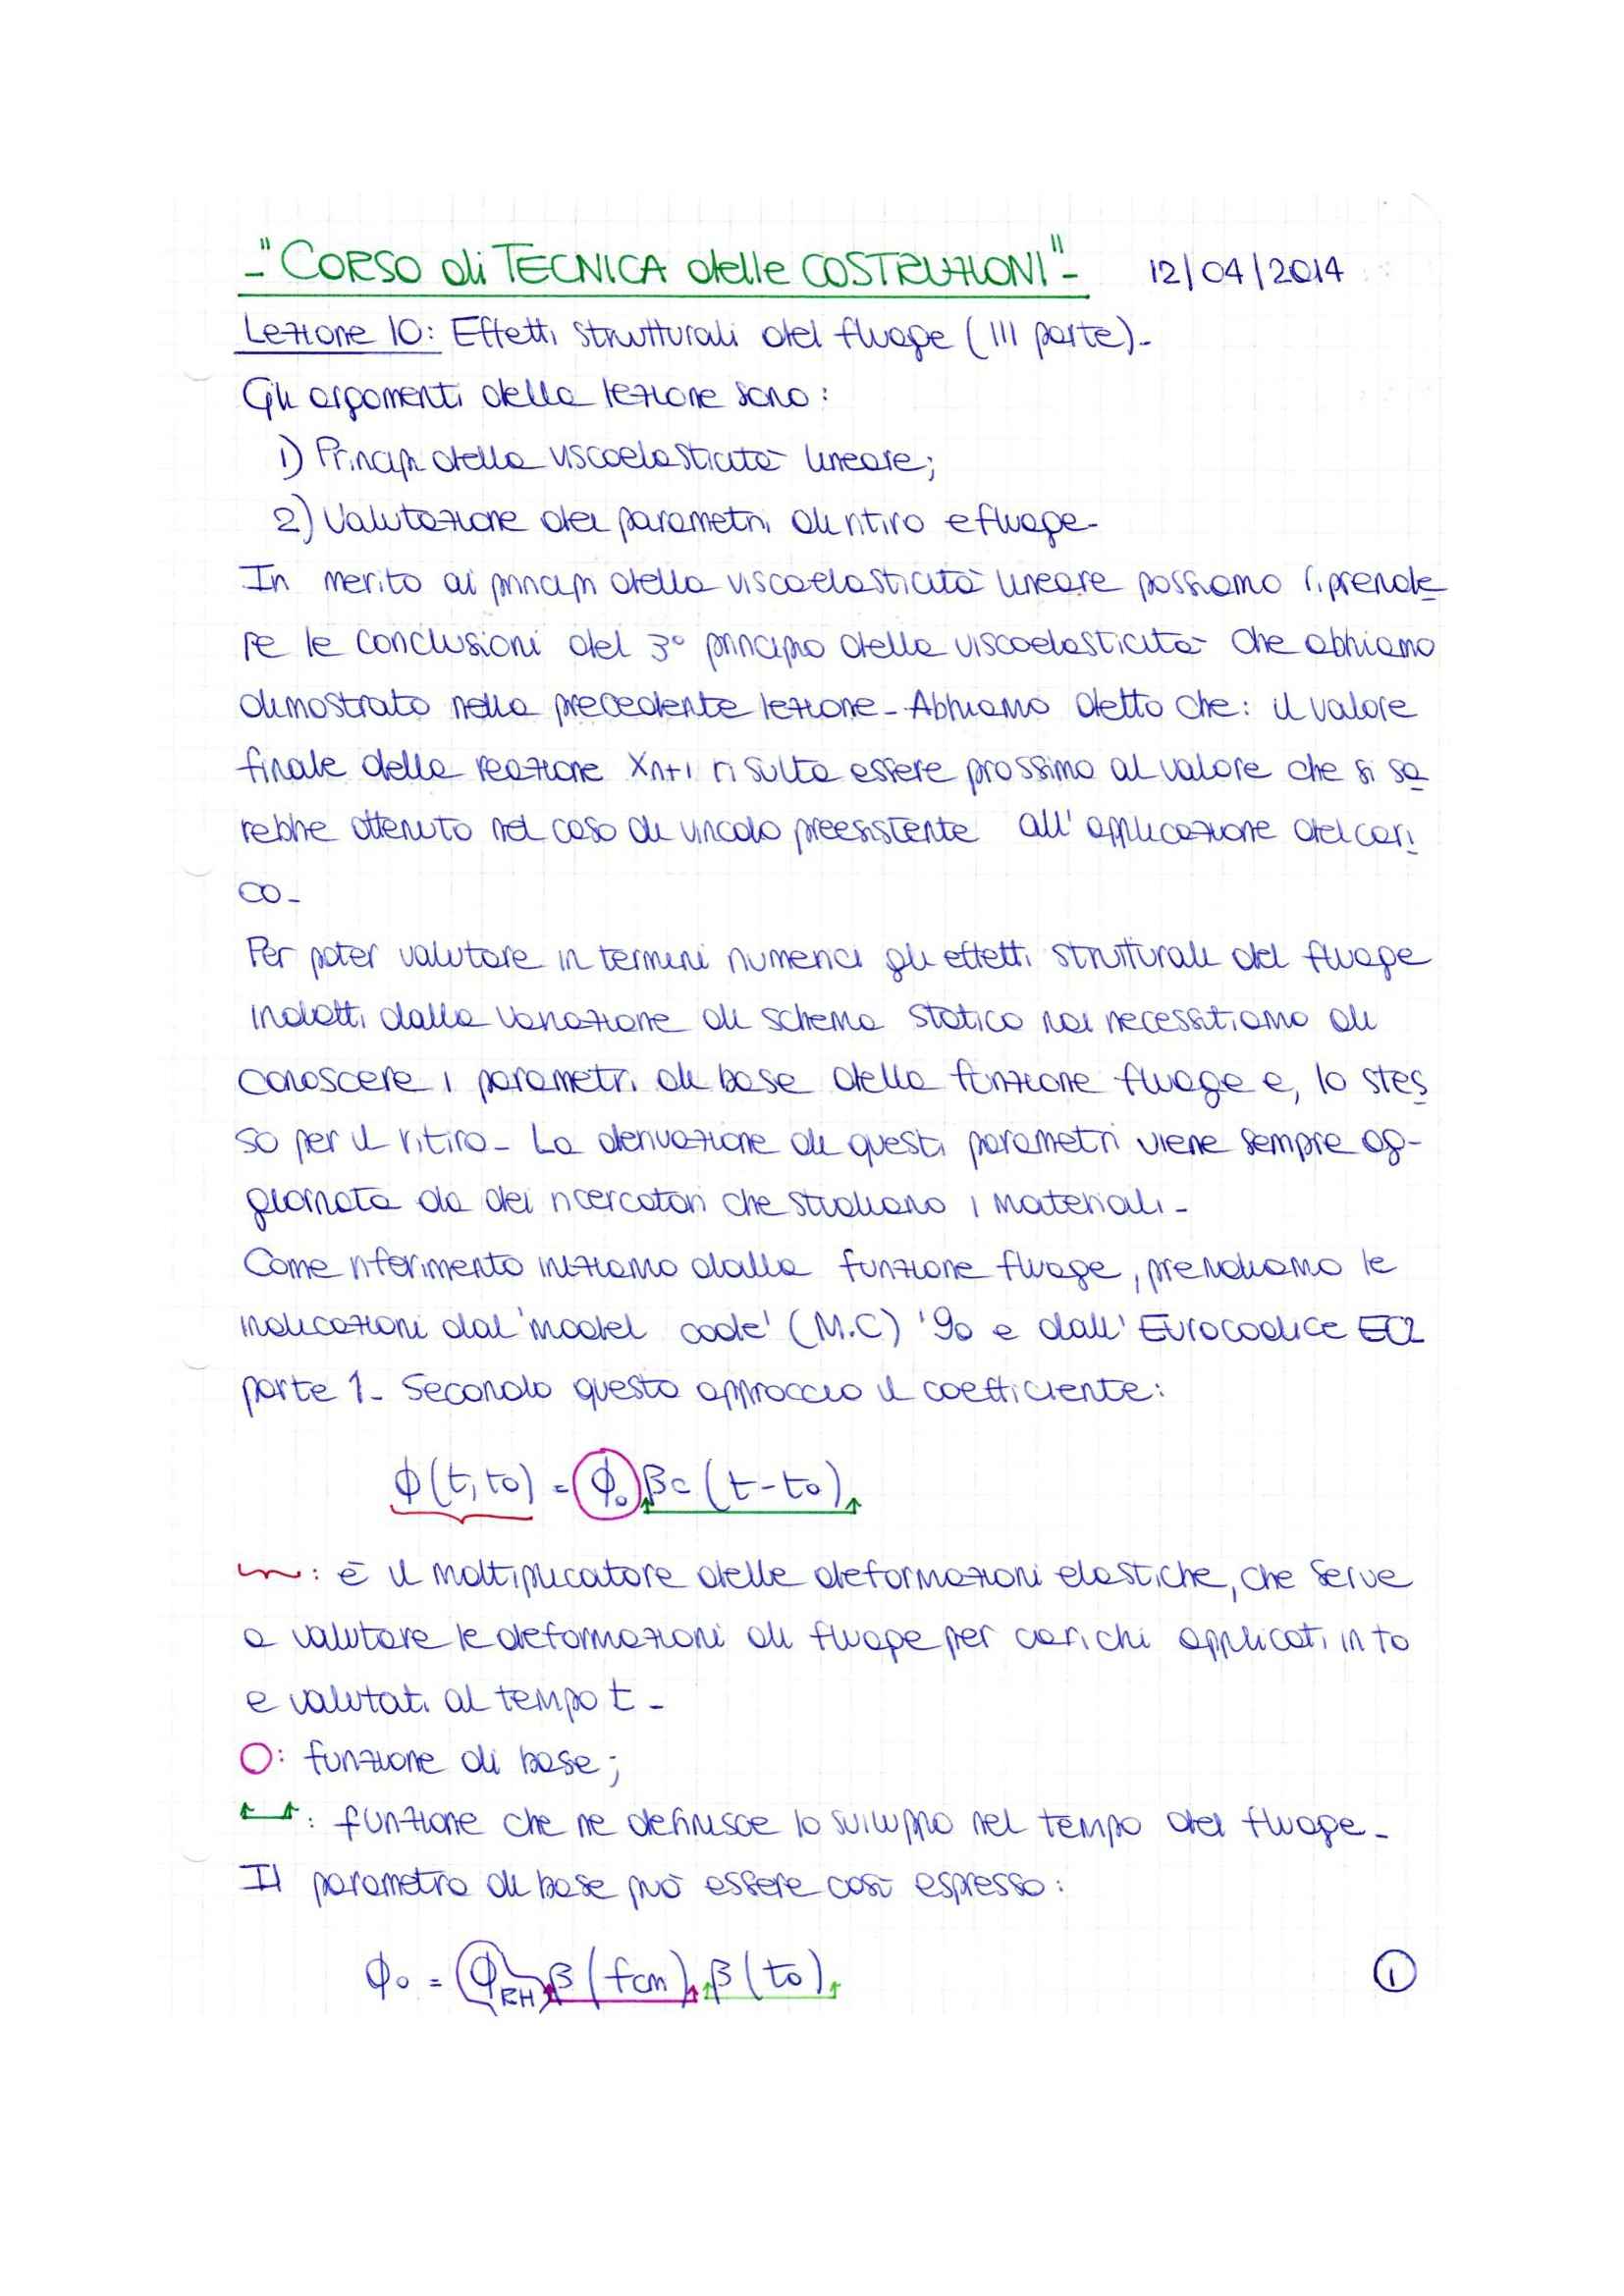 -"CORSO di TECNICA delle COSTRUZIONI"- 12/04/2014
Lezione 10: Effetti strutturali del fluage (III parte).
Gli argomenti della lezione sono:
1) Principi della viscoelasticità lineare;
2) Valutazione dei parametri di ritiro e fluage.
In merito ai principi della viscoelasticità lineare possiamo riprende
re le conclusioni del 3° principio della viscoelasticità che abbiamo
dimostrato nella precedente lezione. Abbiamo detto che: il valore
finale della reazione Xn+1 risulta essere prossimo al valore che si sa
rebbe ottenuto nel caso di vincolo preesistente all'applicazione del cari
co.
Per poter valutare in termini numerici gli effetti strutturali del fluage
indotti dalla variazione di schema statico noi necessitiamo di
conoscere i parametri di base della funzione fluage e, lo stes
so per il ritiro. La derivazione di questi parametri viene sempre ag-
giornata da dei ricercatori che studiano i materiali.
Come riferimento iniziamo dalla funzione fluage, prendiamo le
indicazioni dal 'model code' (M.C) '90 e dall'Eurocodice EC2
parte 1. Secondo questo approccio il coefficiente:
ϕ(t,t0) = ϕ0 βc (t-t0)
: è il moltiplicatore delle deformazioni elastiche, che serve
a valutare le deformazioni di fluage per carichi applicati in t0
e valutati al tempo t.
O: funzione di base;
: funzione che ne definisce lo sviluppo nel tempo del fluage.
Il parametro di base può essere così espresso:
ϕ0 = ϕRH β(fcm) β(t0)
1